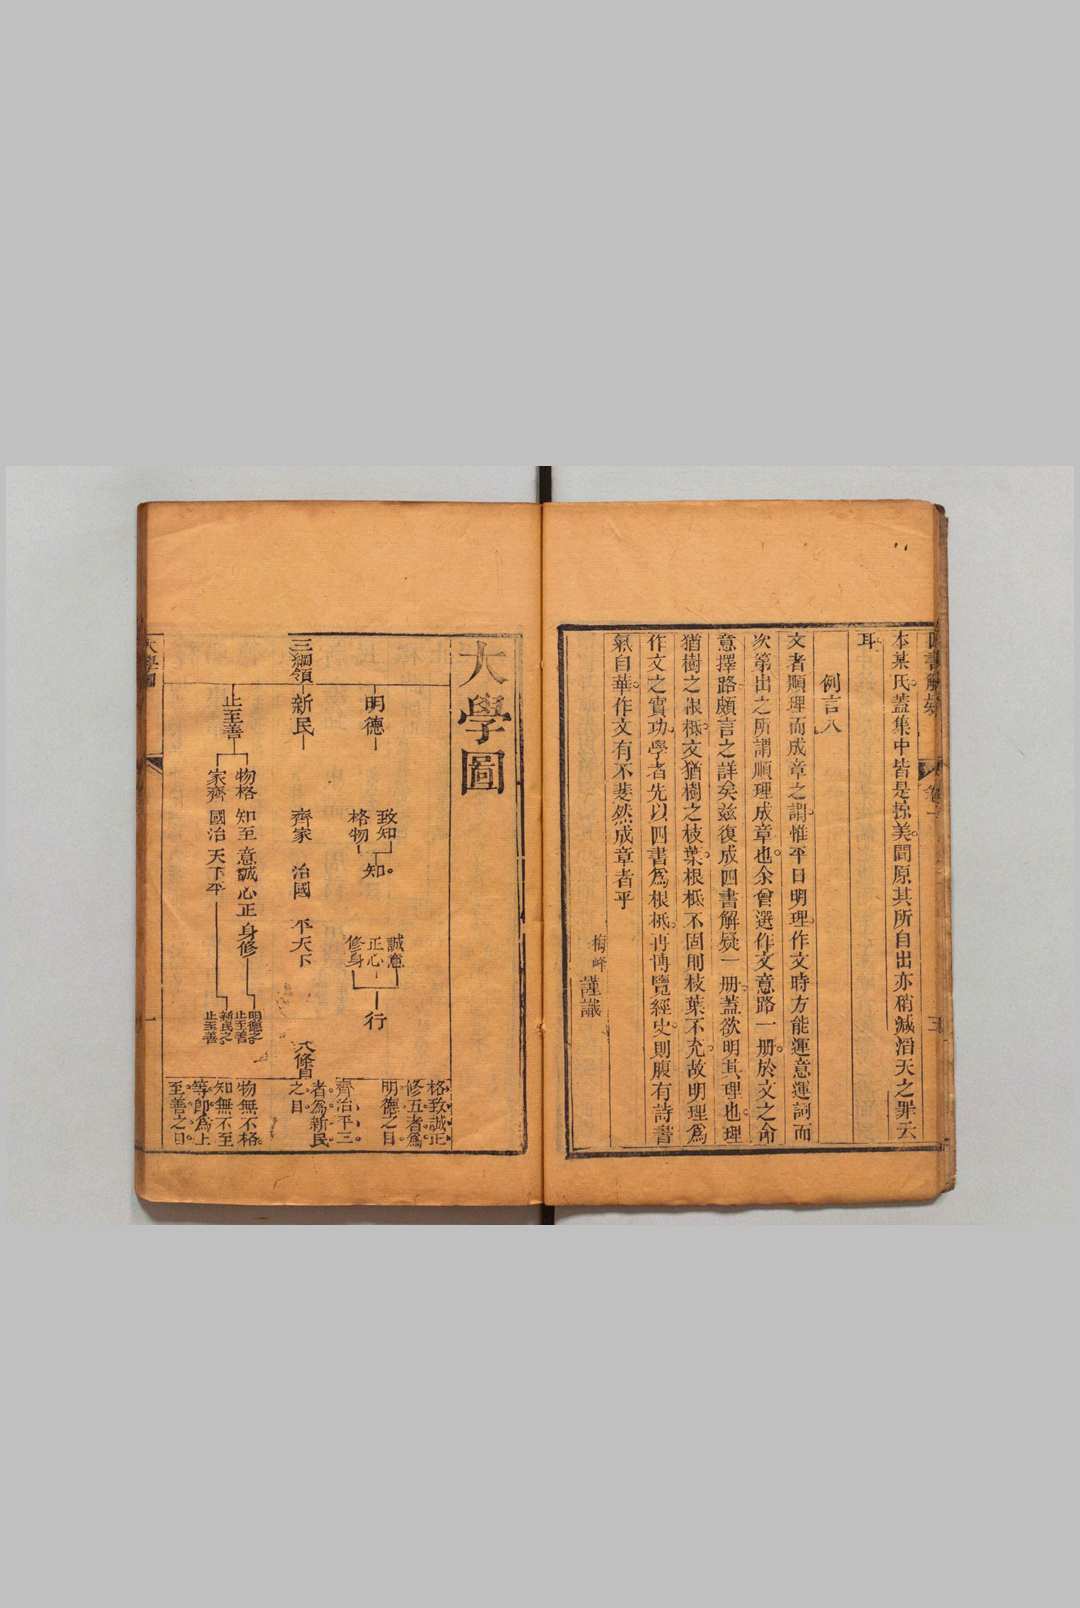 四書解疑
卷首
三
本某氏蓋集中皆是掠美間原其所自出亦稍減滔天之罪云
耳
例言八
文者順理而成章之謂惟平日明理作文時方能運意運詞而
次第出之所謂順理成章也余曾選作文意路一册於文之命
意擇路頗言之詳矣茲復成四書解疑一册蓋欲明其理也理
猶樹之根柢文猶樹之枝葉根柢不固則枝葉不充故明理爲
作文之實功學者先以四書爲根柢再博覽經史則腹有詩書
氣自華作文有不斐然成章者乎
梅峰謹識
大學圖
三綱領
明德
致知
格物
知
誠意
正心
修身
行
新民
齊家 治國 平天下
八條目
止至善
物格 知至 意誠 心正 身修
家齊 國治 天下平
明德之
止至善
新民之
止至善
格致誠正
修五者爲
明德之目
齊治平三
者爲新民
之目
物無不格
知無不至
等即爲上
至善之目
大學圖
一